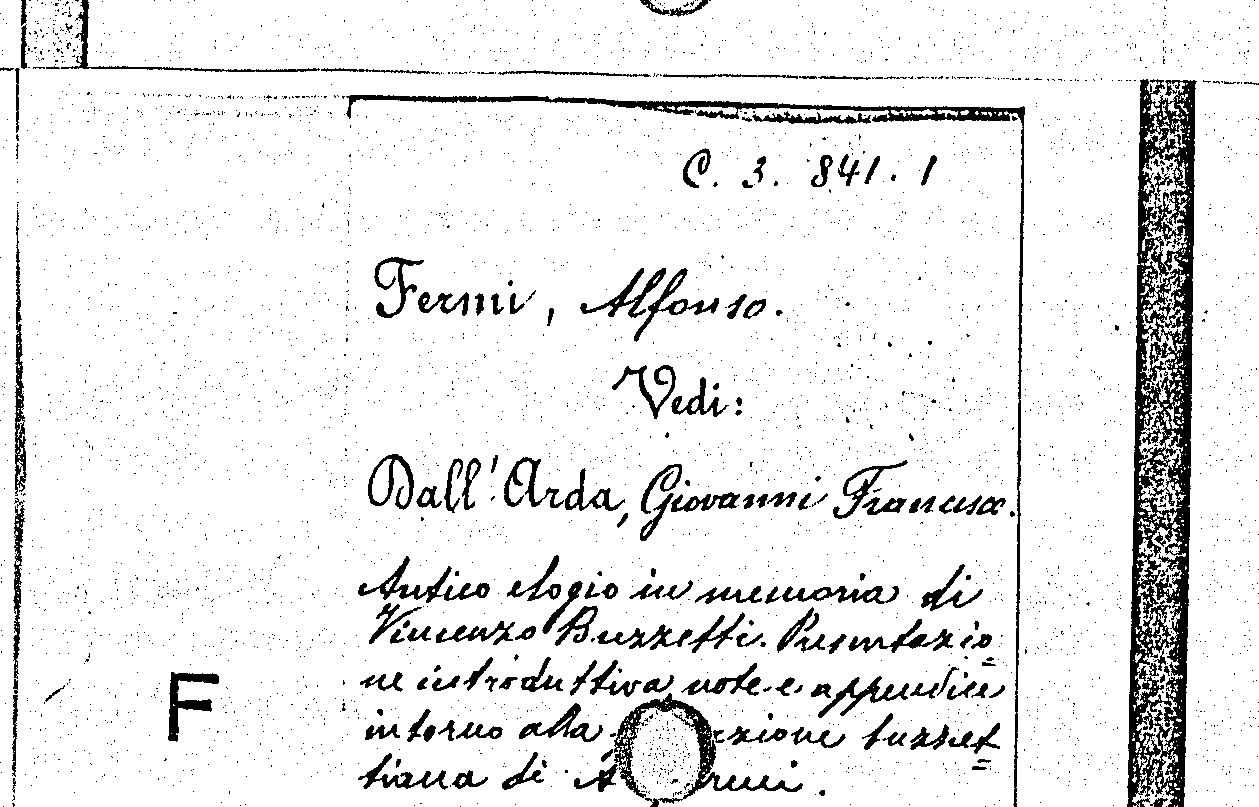 C. 3. 841. 1
Fermi, Alfonso.
Vedi:
Dall'Arda, Giovanni Francesco.
Antico elogio in memoria di
Vincenzo Buzzetti. Presentazio=
ne introduttiva note e appendice
intorno alla zione buzzet=
tiana di A
F